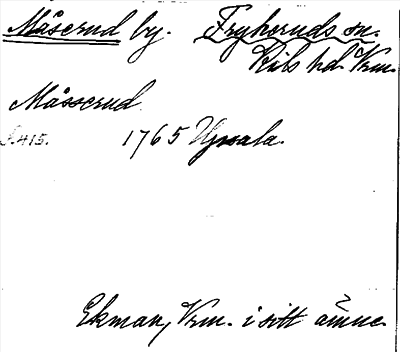 Måserud by. Frykeruds sn.
Kils hd. Vrm.
Måsserud.
S. 415. 1765 Upsala.
Ekman, Vrm. i sitt ämne.